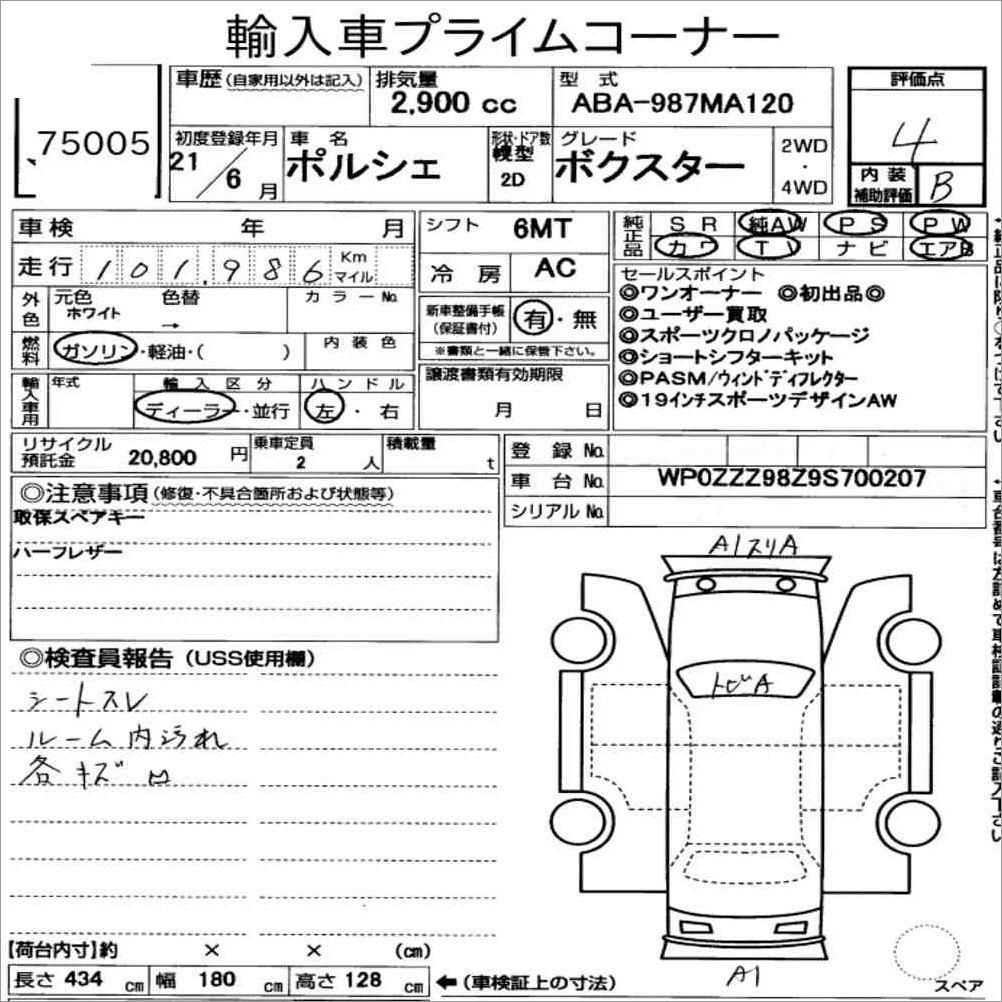 輸入車プライムコーナー
75005
車歴(自家用以外は記入)
排気量
2,900 cc
型 式
ABA-987MA120
評価点
4
初度登録年月
21/6月
車 名
ポルシェ
形状・ドア数
幌型
2D
グレード
ボクスター
2WD
・
4WD
内装
補助評価
B
車検 年 月
シフト 6MT
純正品
SR 純AW PS PW
カワ TV ナビ エアB
走行 101,986 Km マイル
冷 房 AC
セールスポイント
◎ワンオーナー ◎初出品◎
◎ユーザー買取
◎スポーツクロノパッケージ
◎ショートシフターキット
◎PASM/ウィンドディフレクター
◎19インチスポーツデザインAW
外色
元色
ホワイト
色替
→
カラーNo.
新車整備手帳
(保証書付)
有・無
※書類と一緒に保管下さい。
燃料
ガソリン・軽油・( )
内装色
輸入車用
年式
輸入区分
ディーラー・並行
ハンドル
左・右
譲渡書類有効期限
月 日
リサイクル
預託金 20,800 円
乗車定員
2 人
積載量
t
登 録 No.
車 台 No. WP0ZZZ98Z9S700207
シリアル No.
◎注意事項(修復・不具合箇所および状態等)
取保スペアキー
ハーフレザー
A1スリA
トビA
A1
◎検査員報告(USS使用欄)
シートスレ
ルーム内汚れ
各キズ凹
【荷台内寸】約 × × (cm)
長さ 434 cm 幅 180 cm 高さ 128 cm ←(車検証上の寸法)
スペア